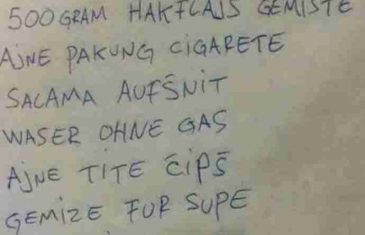 500 GRAM HAKFLAJS GEMISTE
AJNE PAKUNG CIGARETE
SALAMA AUFŠNIT
WASER OHNE GAS
AJNE TITE ČIPŠ
GEMIZE FUR SUPE